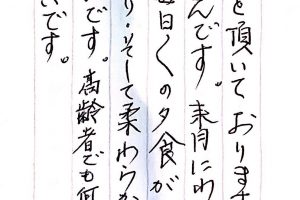 を頂いております
んです。来月にわ
毎日くの夕食が
り・そして柔らか
です。高齢者でも何
いです。